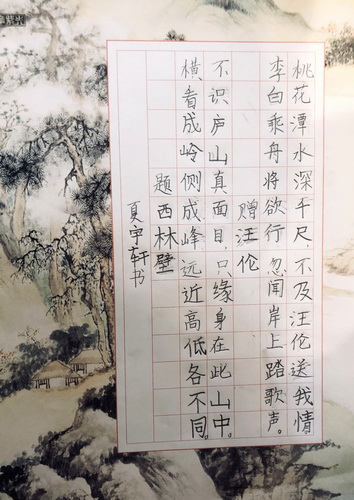 夏宇轩书
题西林壁
横看成岭侧成峰远近高低各不同。
不识庐山真面目,只缘身在此山中。
赠汪伦
李白乘舟将欲行忽闻岸上踏歌声。
桃花潭水深千尺,不及汪伦送我情